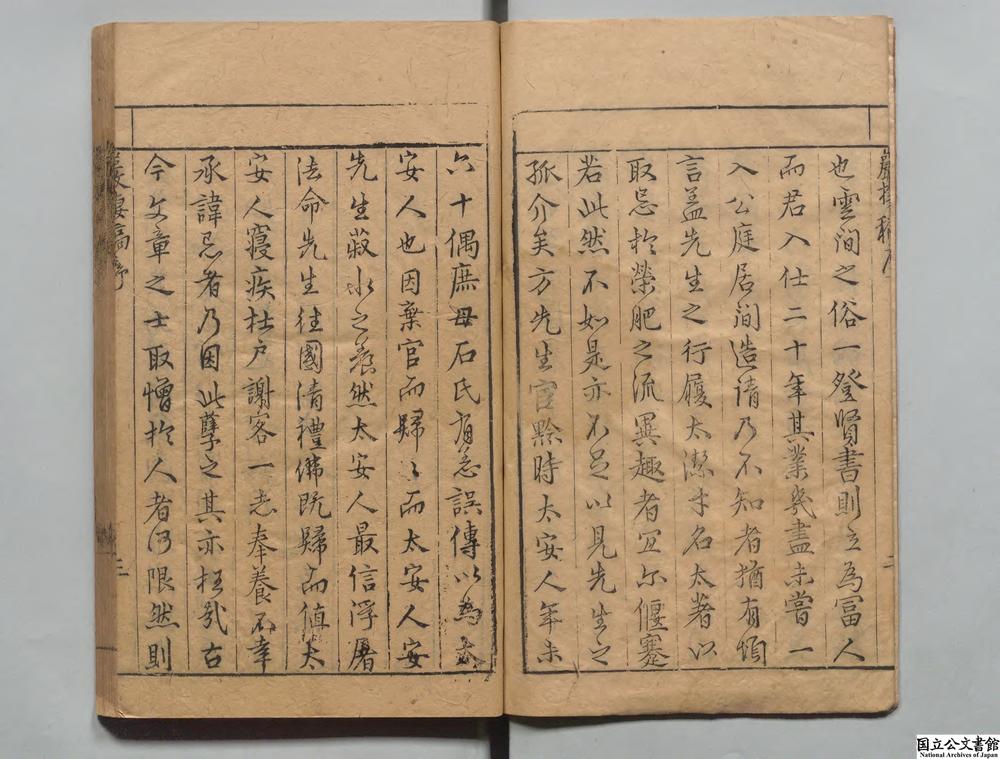 也雲間之俗一登賢書則立為富人
而君入仕二十年其業幾盡未嘗一
入公庭居間造請乃不知者猶有煩
言盖先生之行履太潔才名太著以
取忌於榮肥之流異趣者宜尒偃蹇
若此然不如是亦不足以見先生之
孤介矣方先生官黔時太安人年未
六十偶庶母石氏有急誤傳以為太
安人也因棄官而歸〻而太安人安
先生菽水之養然太安人最信浮屠
法命先生往國清禮佛既歸而值太
安人寢疾杜户謝客一志奉養不幸
承諱忌者乃因此孽之其亦枉哉古
今文章之士取憎扵人者何限然則
巖棲稿序
二
国立公文書館
National Archives of Japan